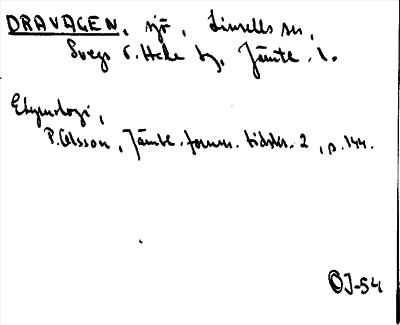 DRAVAGEN, sjö, Linsells sn,
Svegs t. Hede tg, Jämtl. l.
Etymologi,
P. Olsson, Jämtl. fornm. tidskr. 2, p. 144.
OJ-54